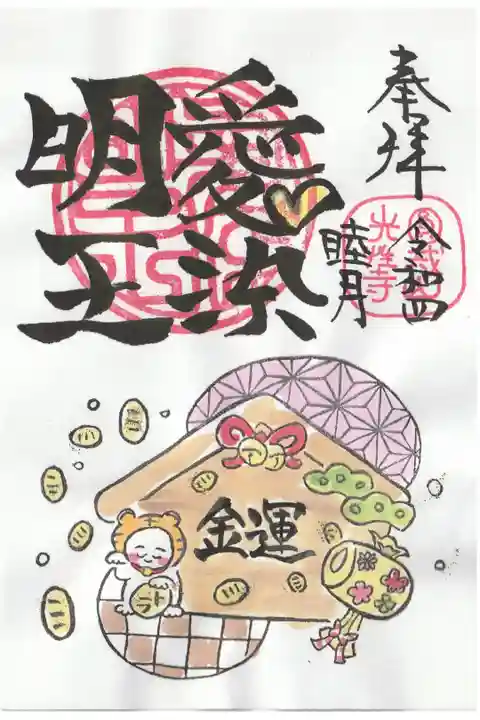 奉拝
令和四
睦月
愛染
明王
金運
トラ